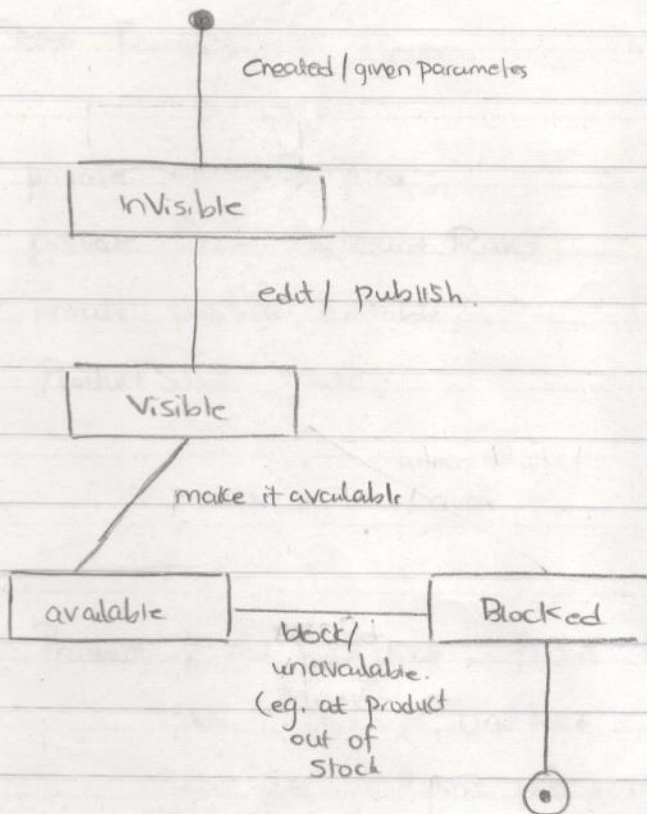 Created / given parametes
inVisible
edit / publish.
Visible
make it available
available
Blocked
block/
unavailable.
(eg. at product
out of
Stock